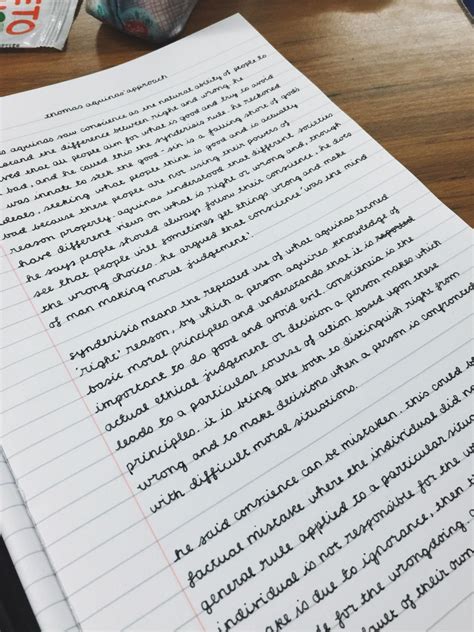 ETO
thomas aquinas' approach
aquinas saw conscience as the natural ability of people to
understand the difference between right and wrong. he
believed that all people aim for what is good and try to avoid
bad, and he called this the synderisis rule. he reckoned
was innate to seek the good - sin is a falling short of gods
ideals, seeking what people think is good and is actually
bad because these people are not using their powers of
reason properly. aquinas understood that different societies
have different views on what is right or wrong and, though
he says people should always follow their conscience, he does
see that people will sometimes get things wrong and make
the wrong choices. he argued that conscience 'was the mind
of man making moral judgement'.
synderisis means the repeated use of what aquinas termed
'right' reason, by which a person aquires knowledge of
basic moral principles and understands that it is
important to do good and avoid evil. conscientia is the
actual ethical judgement or decision a person makes which
leads to a particular course of action based upon these
principles. it is being able both to distinguish right from
wrong and to make decisions when a person is confronted
with difficult moral situations.
he said conscience can be mistaken. this could be
factual mistake where the individual did no
general rule applied to a particular situa
individual is not responsible for the wr
ake is due to ignorance, then t
de for the wrongdoing a
fault of their own